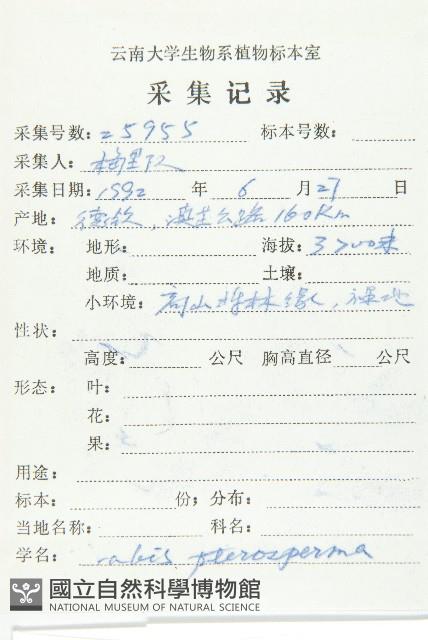 云南大学生物系植物标本室
采集记录
采集号数: 25955 标本号数:
采集人: 梅里队
采集日期: 1992 年 6 月 27 日
产地: 德钦, 公路 160Km
环境: 地形: 海拔: 3700米
地质: 土壤:
小环境: 高山 林缘, 湿地
性状:
高度: 公尺 胸高直径 公尺
形态: 叶:
花:
果:
用途:
标本: 份; 分布:
当地名称: 科名:
学名: rabis pterosperma
國立自然科學博物館
NATIONAL MUSEUM OF NATURAL SCIENCE